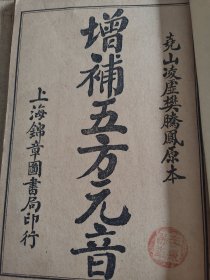 堯山凌虛樊騰鳳原本
增補五方元音
上海錦章圖書局印行